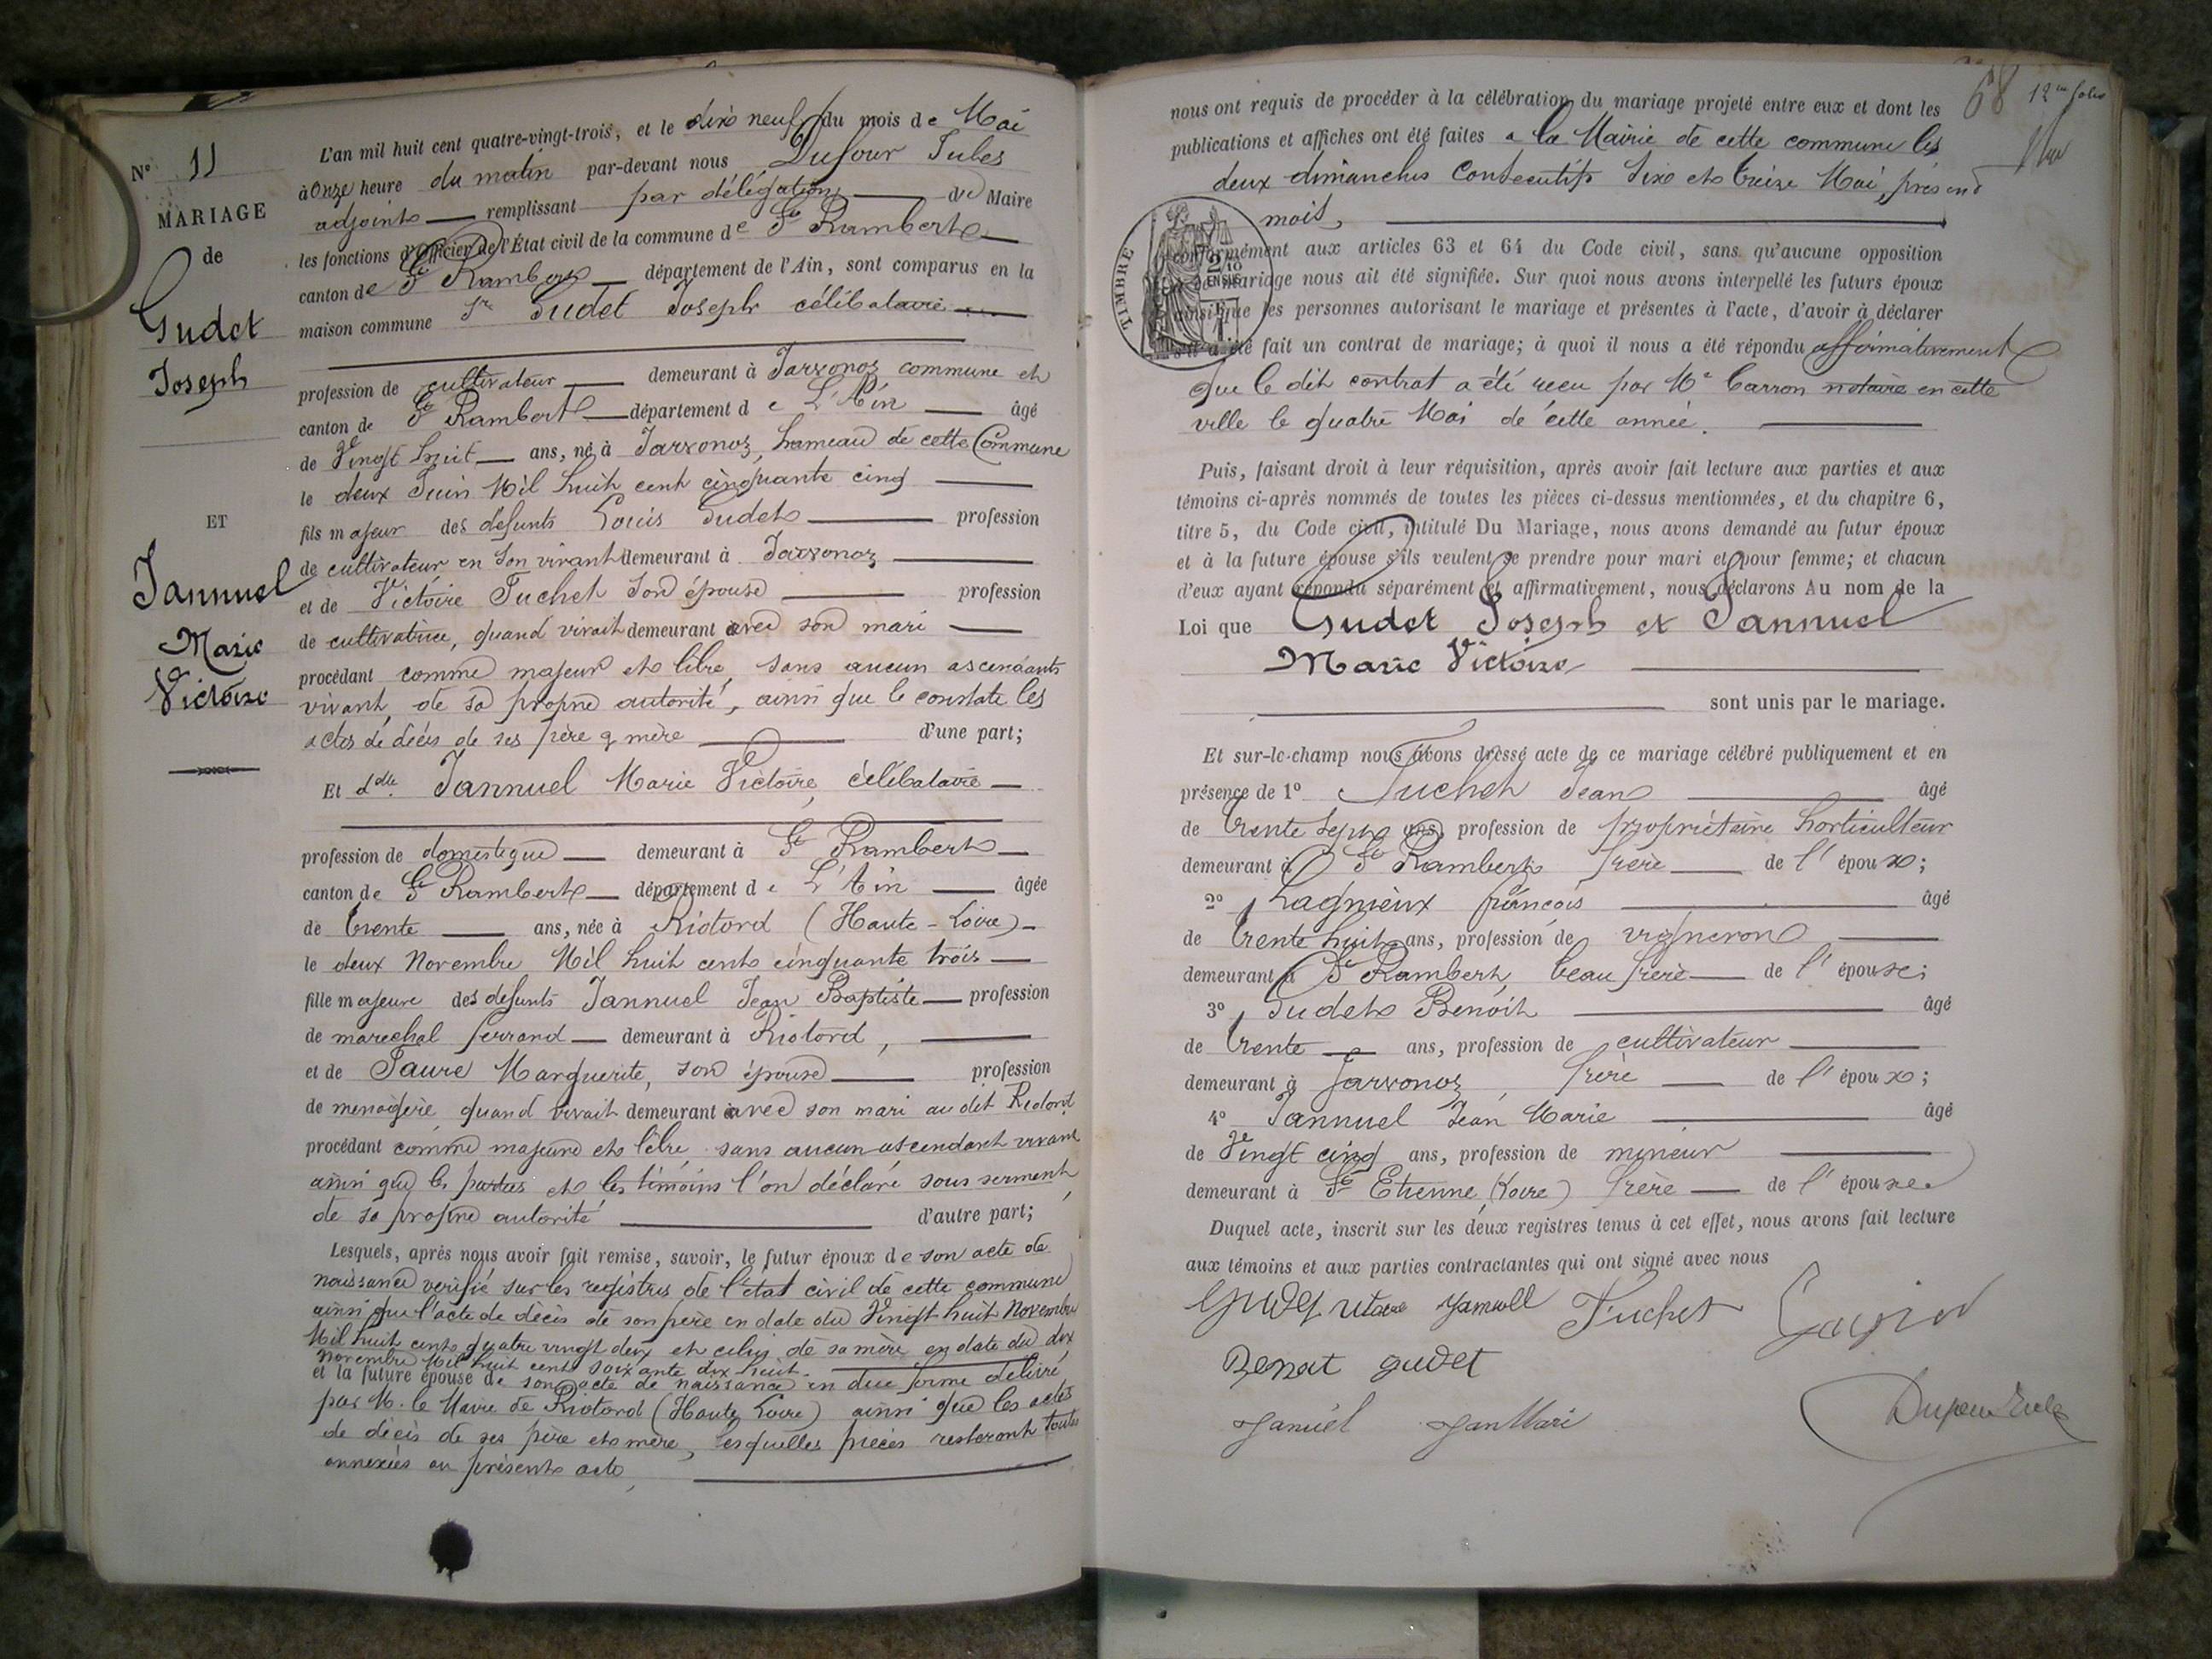 N° 11
MARIAGE
de
Gudet
Joseph
ET
Jannuel
Marie
Victoire
L'an mil huit cent quatre-vingt-trois, et le dix neuf du mois de Mai
à Onze heure du matin par-devant nous Dufour Jules
adjoint remplissant par délégation de Maire
les fonctions d'Officier de l'État civil de la commune de St Rambert
canton de St Rambert département de l'Ain, sont comparus en la
maison commune Sr Gudet Joseph célibataire
profession de cultivateur demeurant à Javronoz commune et
canton de St Rambert département de L'Ain âgé
de Vingt huit ans, né à Javronoz, hameau de cette Commune
le deux Juin Mil huit cent cinquante cinq
fils majeur des défunts Louis Gudet profession
de cultivateur en son vivant demeurant à Javronoz
et de Victoire Fuchet son épouse profession
de cultivatrice, quand vivait demeurant avec son mari
procédant comme majeur et libre, sans aucun ascendants
vivant, de sa propre autorité, ainsi que le constate les
actes de décès de ses père & mère d'une part;
Et dlle Jannuel Marie Victoire, célibataire
profession de domestique demeurant à St Rambert
canton de St Rambert département de L'Ain âgée
de trente ans, née à Riotord (Haute-Loire)
le deux Novembre Mil huit cent cinquante trois
fille majeure des défunts Jannuel Jean Baptiste profession
de marechal ferrand demeurant à Riotord,
et de Faure Marguerite, son épouse profession
de menagère, quand vivait demeurant avec son mari au dit Riotord
procédant comme majeure et libre sans aucun ascendant vivant
ainsi que les parties et les témoins l'on déclaré sous serment,
de sa propre autorité d'autre part;
Lesquels, après nous avoir fait remise, savoir, le futur époux de son acte de
naissance verifié sur les registres de l'état civil de cette commune
ainsi que l'acte de décès de son père en date du Vingt huit Novembre
Mil huit cent quatre vingt deux et celui de sa mère en date du dix
novembre Mil huit cent soixante dix huit.
et la future épouse de son acte de naissance en due forme délivré
par M. le Maire de Riotord (Haute Loire) ainsi que les actes
de décès de ses père et mère, lesquelles pièces resteront toutes
annexées au présent acte,
68 12me folio
nous ont requis de procéder à la célébration du mariage projeté entre eux et dont les
publications et affiches ont été faites à la Mairie de cette commune les
deux dimanches consecutifs Six et treize Mai, présent
mois,
TIMBRE
conformément aux articles 63 et 64 du Code civil, sans qu'aucune opposition
au dit mariage nous ait été signifiée. Sur quoi nous avons interpellé les futurs époux
ainsi que les personnes autorisant le mariage et présentes à l'acte, d'avoir à déclarer
s'il a été fait un contrat de mariage; à quoi il nous a été répondu affirmativement
que le dit contrat a été recu par Me Carron notaire en cette
ville le quatre Mai de cette année.
Puis, faisant droit à leur réquisition, après avoir fait lecture aux parties et aux
témoins ci-après nommés de toutes les pièces ci-dessus mentionnées, et du chapitre 6,
titre 5, du Code civil, intitulé Du Mariage, nous avons demandé au futur époux
et à la future épouse s'ils veulent se prendre pour mari et pour femme; et chacun
d'eux ayant répondu séparément et affirmativement, nous déclarons Au nom de la
Loi que Gudet Joseph et Jannuel
Marie Victoire
sont unis par le mariage.
Et sur-le-champ nous avons dressé acte de ce mariage célébré publiquement et en
présence de 1° Fuchet Jean âgé
de trente sept ans, profession de propriétaire horticulteur
demeurant à St Rambert frère de l'époux;
2° Lagnieux françois âgé
de trente huit ans, profession de vigneron
demeurant à St Rambert, beau frère de l'épouse;
3° Gudet Benoit âgé
de trente ans, profession de cultivateur
demeurant à Javronoz, frère de l'époux;
4° Jannuel Jean Marie âgé
de Vingt cinq ans, profession de mineur
demeurant à St Etienne (Loire) frère de l'épouse.
Duquel acte, inscrit sur les deux registres tenus à cet effet, nous avons fait lecture
aux témoins et aux parties contractantes qui ont signé avec nous
Fuchet
gudet
Dufour Jules